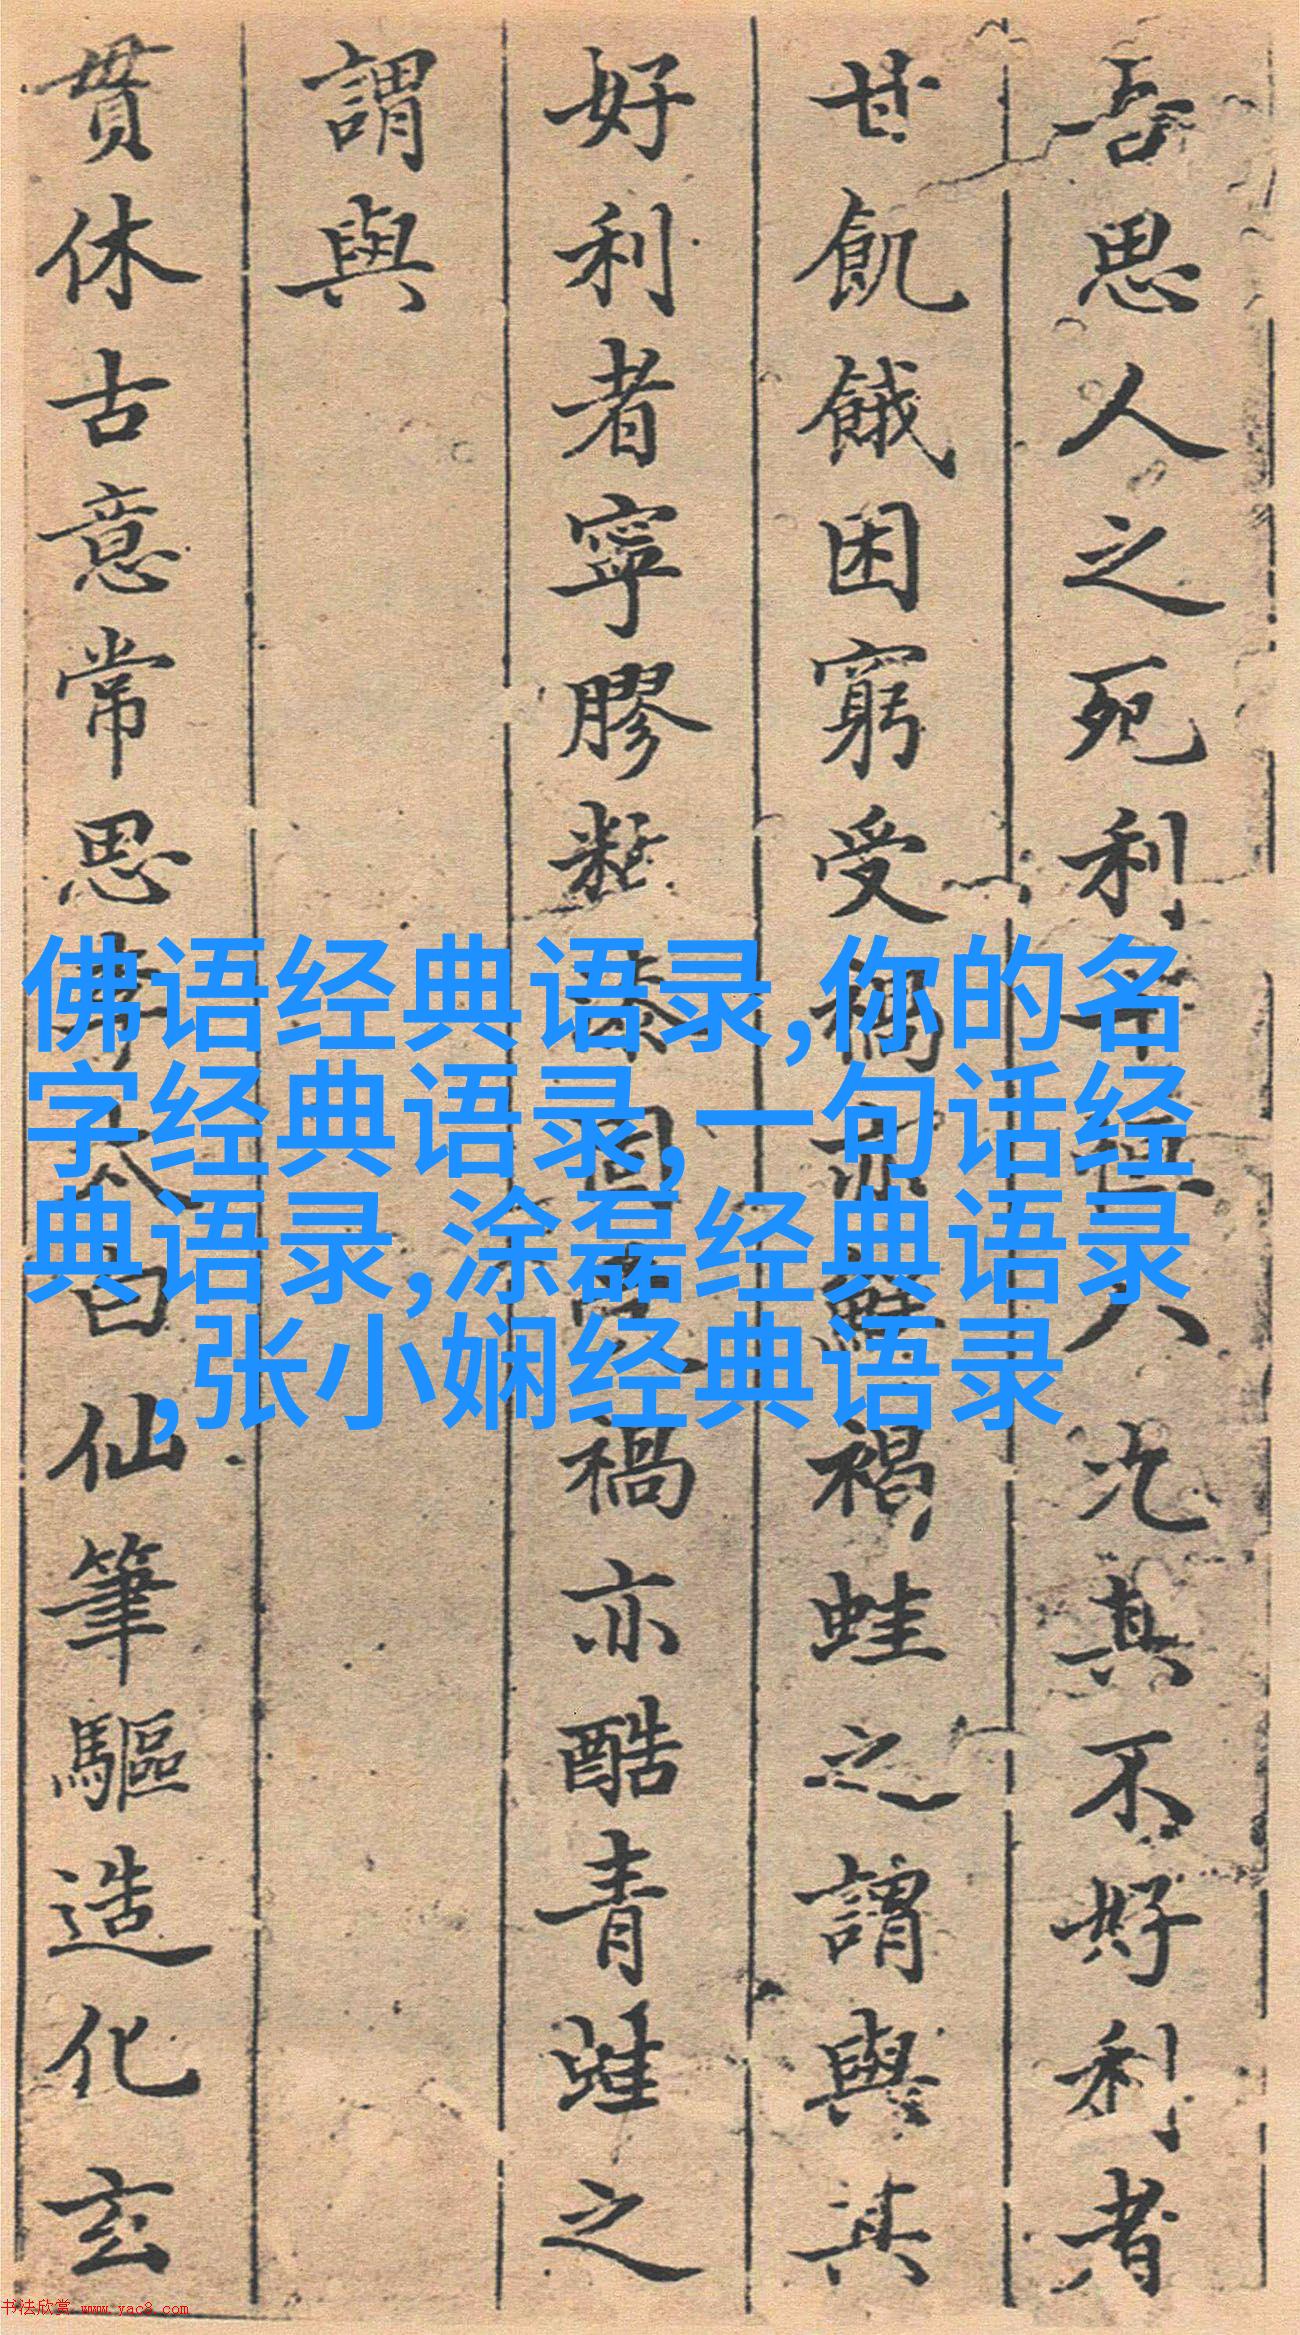 吾思人之死利十恒八九其不好利者
甘飢餓困窮受禍亦鮮褐蛙之謂與其
好利者寧膠黏漆固而人禍亦酷青蛙之
謂與
貫休古意常思李太白仙筆驅造化玄
佛语经典语录,你的名
字经典语录,一句话经
典语录,涂磊经典语录
,张小娴经典语录
书法欣赏 www.yac8.com